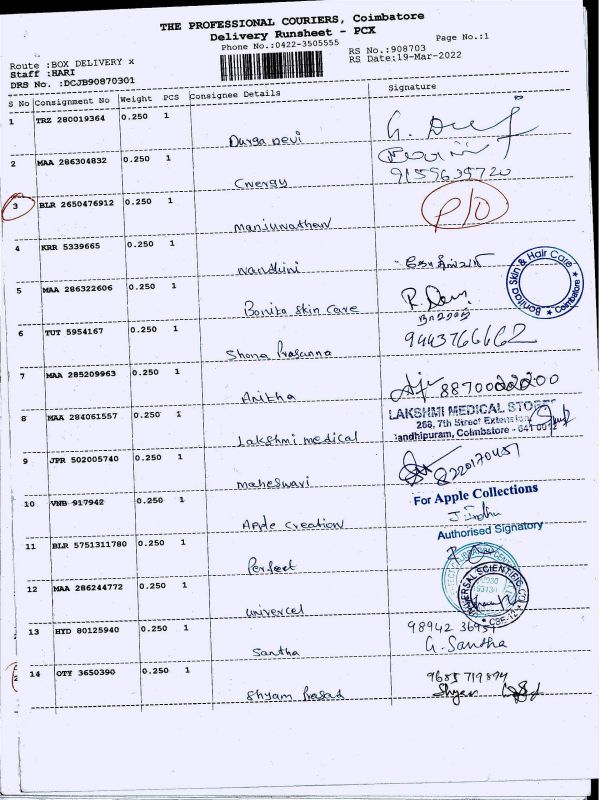 THE PROFESSIONAL COURIERS, Coimbatore
Delivery Runsheet - PCX
Phone No.:0422-3505555
Page No.:1
RS No.:908703
RS Date:19-Mar-2022
Route :BOX DELIVERY x
Staff :HARI
DRS No. :DCJB90870301
S No Consignment No Weight PCS Consignee Details Signature
1 TRZ 280019364 0.250 1
Durga Devi
2 MAA 286304832 0.250 1
9159635720
3 BLR 2650476912 0.250 1
P/O
Manjunathan
4 KRR 5339665 0.250 1
Nandhini
5 MAA 286322606 0.250 1
Bonita Skin & Hair Care
Coimbatore
Bonita Skin Care
6 TUT 5954167 0.250 1
9443766662
Shona Prasanna
7 MAA 285209963 0.250 1
Anitha
8 MAA 284061557 0.250 1
LAKSHMI MEDICAL STORES
268, 7th Street Extension
Gandhipuram, Coimbatore - 641 012
Lakshmi medical
9 JPR 502005740 0.250 1
8220170457
maheswari
10 VNB 917942 0.250 1
For Apple Collections
J. Indhu
Authorised Signatory
Apple Creation
11 BLR 5751311780 0.250 1
Perfect
12 MAA 286244772 0.250 1
UNIVERSAL SCIENTIFIC
univercel
13 HYD 80125940 0.250 1
G. Santha
Santha
14 OTY 3650390 0.250 1
Shyam
Shyam Prasad